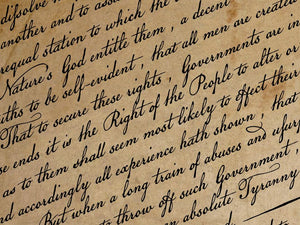 dissolve
another and to assu
equal station to which the
Nature's God entitle them, a decent
ths to be self-evident, that all men are created
That to secure these rights, Governments are in
it is the Right of the People to alter or
se ends
as to them shall seem most likely to effect their
nd accordingly all experience hath shown, that
But when a long train of abuses and usurp
to throw off such Government,
an absolute Tyranny